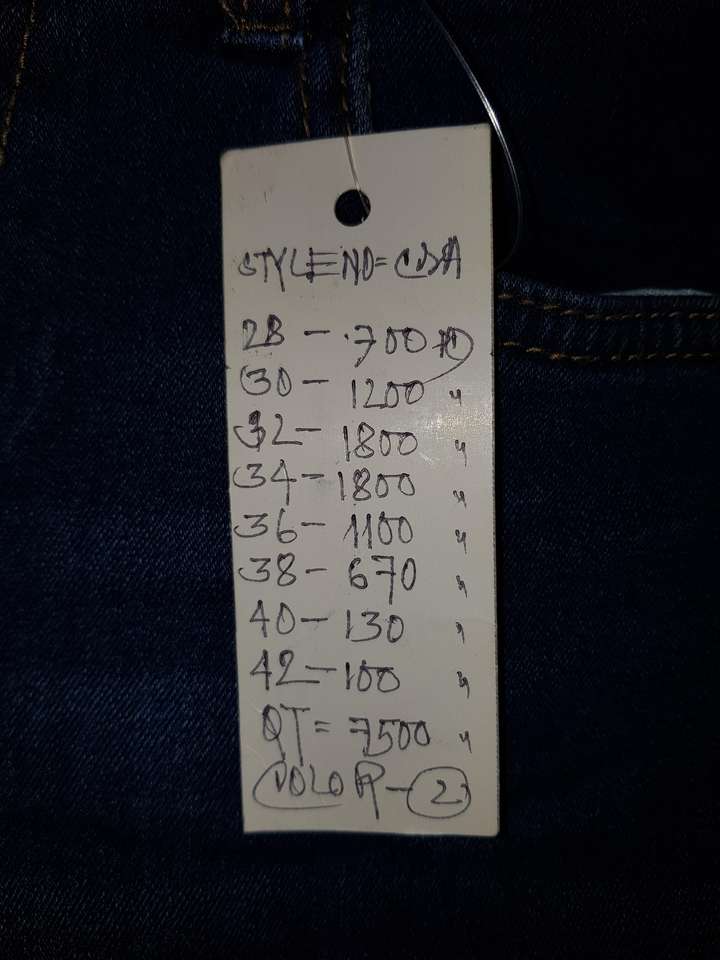 STYLE NO = CBA
28 - 700
30 - 1200 "
32 - 1800 "
34 - 1800 "
36 - 1100 "
38 - 670 "
40 - 130 "
42 - 100 "
QT = 7500 "
COLOR - 2